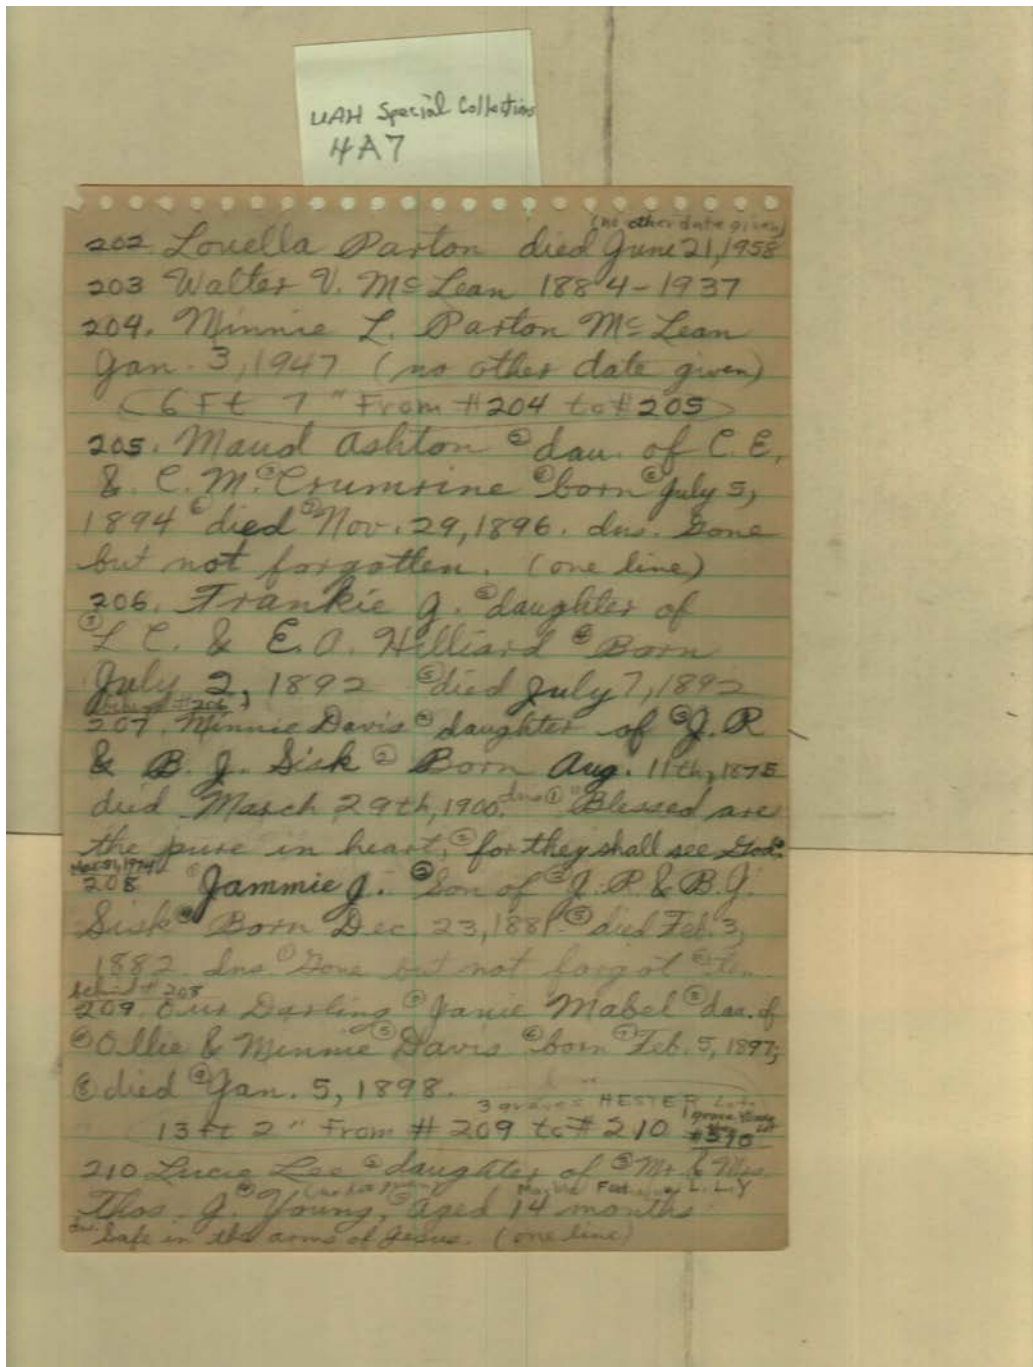 UAH Special Collections
4A7
(no other date given)
202. Louella Parton died June 21, 1958
203 Walter V. McLean 1884-1937
204. Minnie L. Parton McLean
Jan. 3, 1947 (no other date given)
(6 Ft 7" From #204 to #205)
205. Maud Ashton ② dau. of C. E.
& C. M. ③ Crumrine ④ born ⑤ July 5,
1894 ⑥ died ⑦ Nov. 29, 1896. dns. Gone
but not forgotten. (one line)
206. Frankie J. ② daughter of
③ L C. & E. A. Hilliard ④ Born
July 2, 1892 ⑤ died July 7, 1892
(behind #206)
207. Minnie Davis ② daughter of ③ J. R
& B. J. Sisk ② Born Aug. 11th, 1875
died March 29th, 1900. dns ① "Blessed are
the pure in heart, ② for they shall see God."
Mar 31, 1974
208 ① Jammie J. ② Son of ③ J. R. & B. J.
Sisk ④ Born Dec. 23, 1881. ⑤ died Feb. 3,
1882. dns ① Gone but not forgot ② ten
behind #208
209. Our Darling ② Janie Mabel ③ dau. of
④ Ollie & Minnie ⑤ Davis ⑥ born ⑦ Feb. 5, 1897;
⑧ died ⑨ Jan. 5, 1898.
3 graves HESTER Lot
13 ft 2" From # 209 to # 210 1 grave Young
Lot
210 Lucie Lee ② daughter of ③ Mr. & Mrs.
L. L. Y
Thos. J. ④ Young, ⑤ aged 14 months
dns. Safe in the arms of Jesus. (one line)